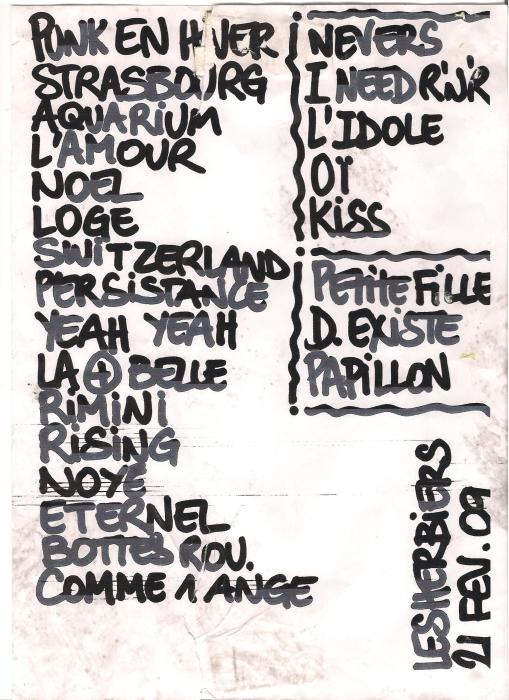 PUNK EN HIVER
STRASBOURG
AQUARiUM
L'AMOUR
NOEL
LOGE
SWiTZERLAND
PERSiSTANCE
YEAH YEAH
LA ⊕ BELLE
RiMiNi
RiSiNG
NOYÉ
ETERNEL
BOTTES ROU.
COMME 1 ANGE
NEVERS
I NEED R'N'R
L'IDOLE
OÏ
KiSS
PETiTE FiLLE
D. EXiSTE
PAPiLLON
LES HERBiERS
21 FEV. 09